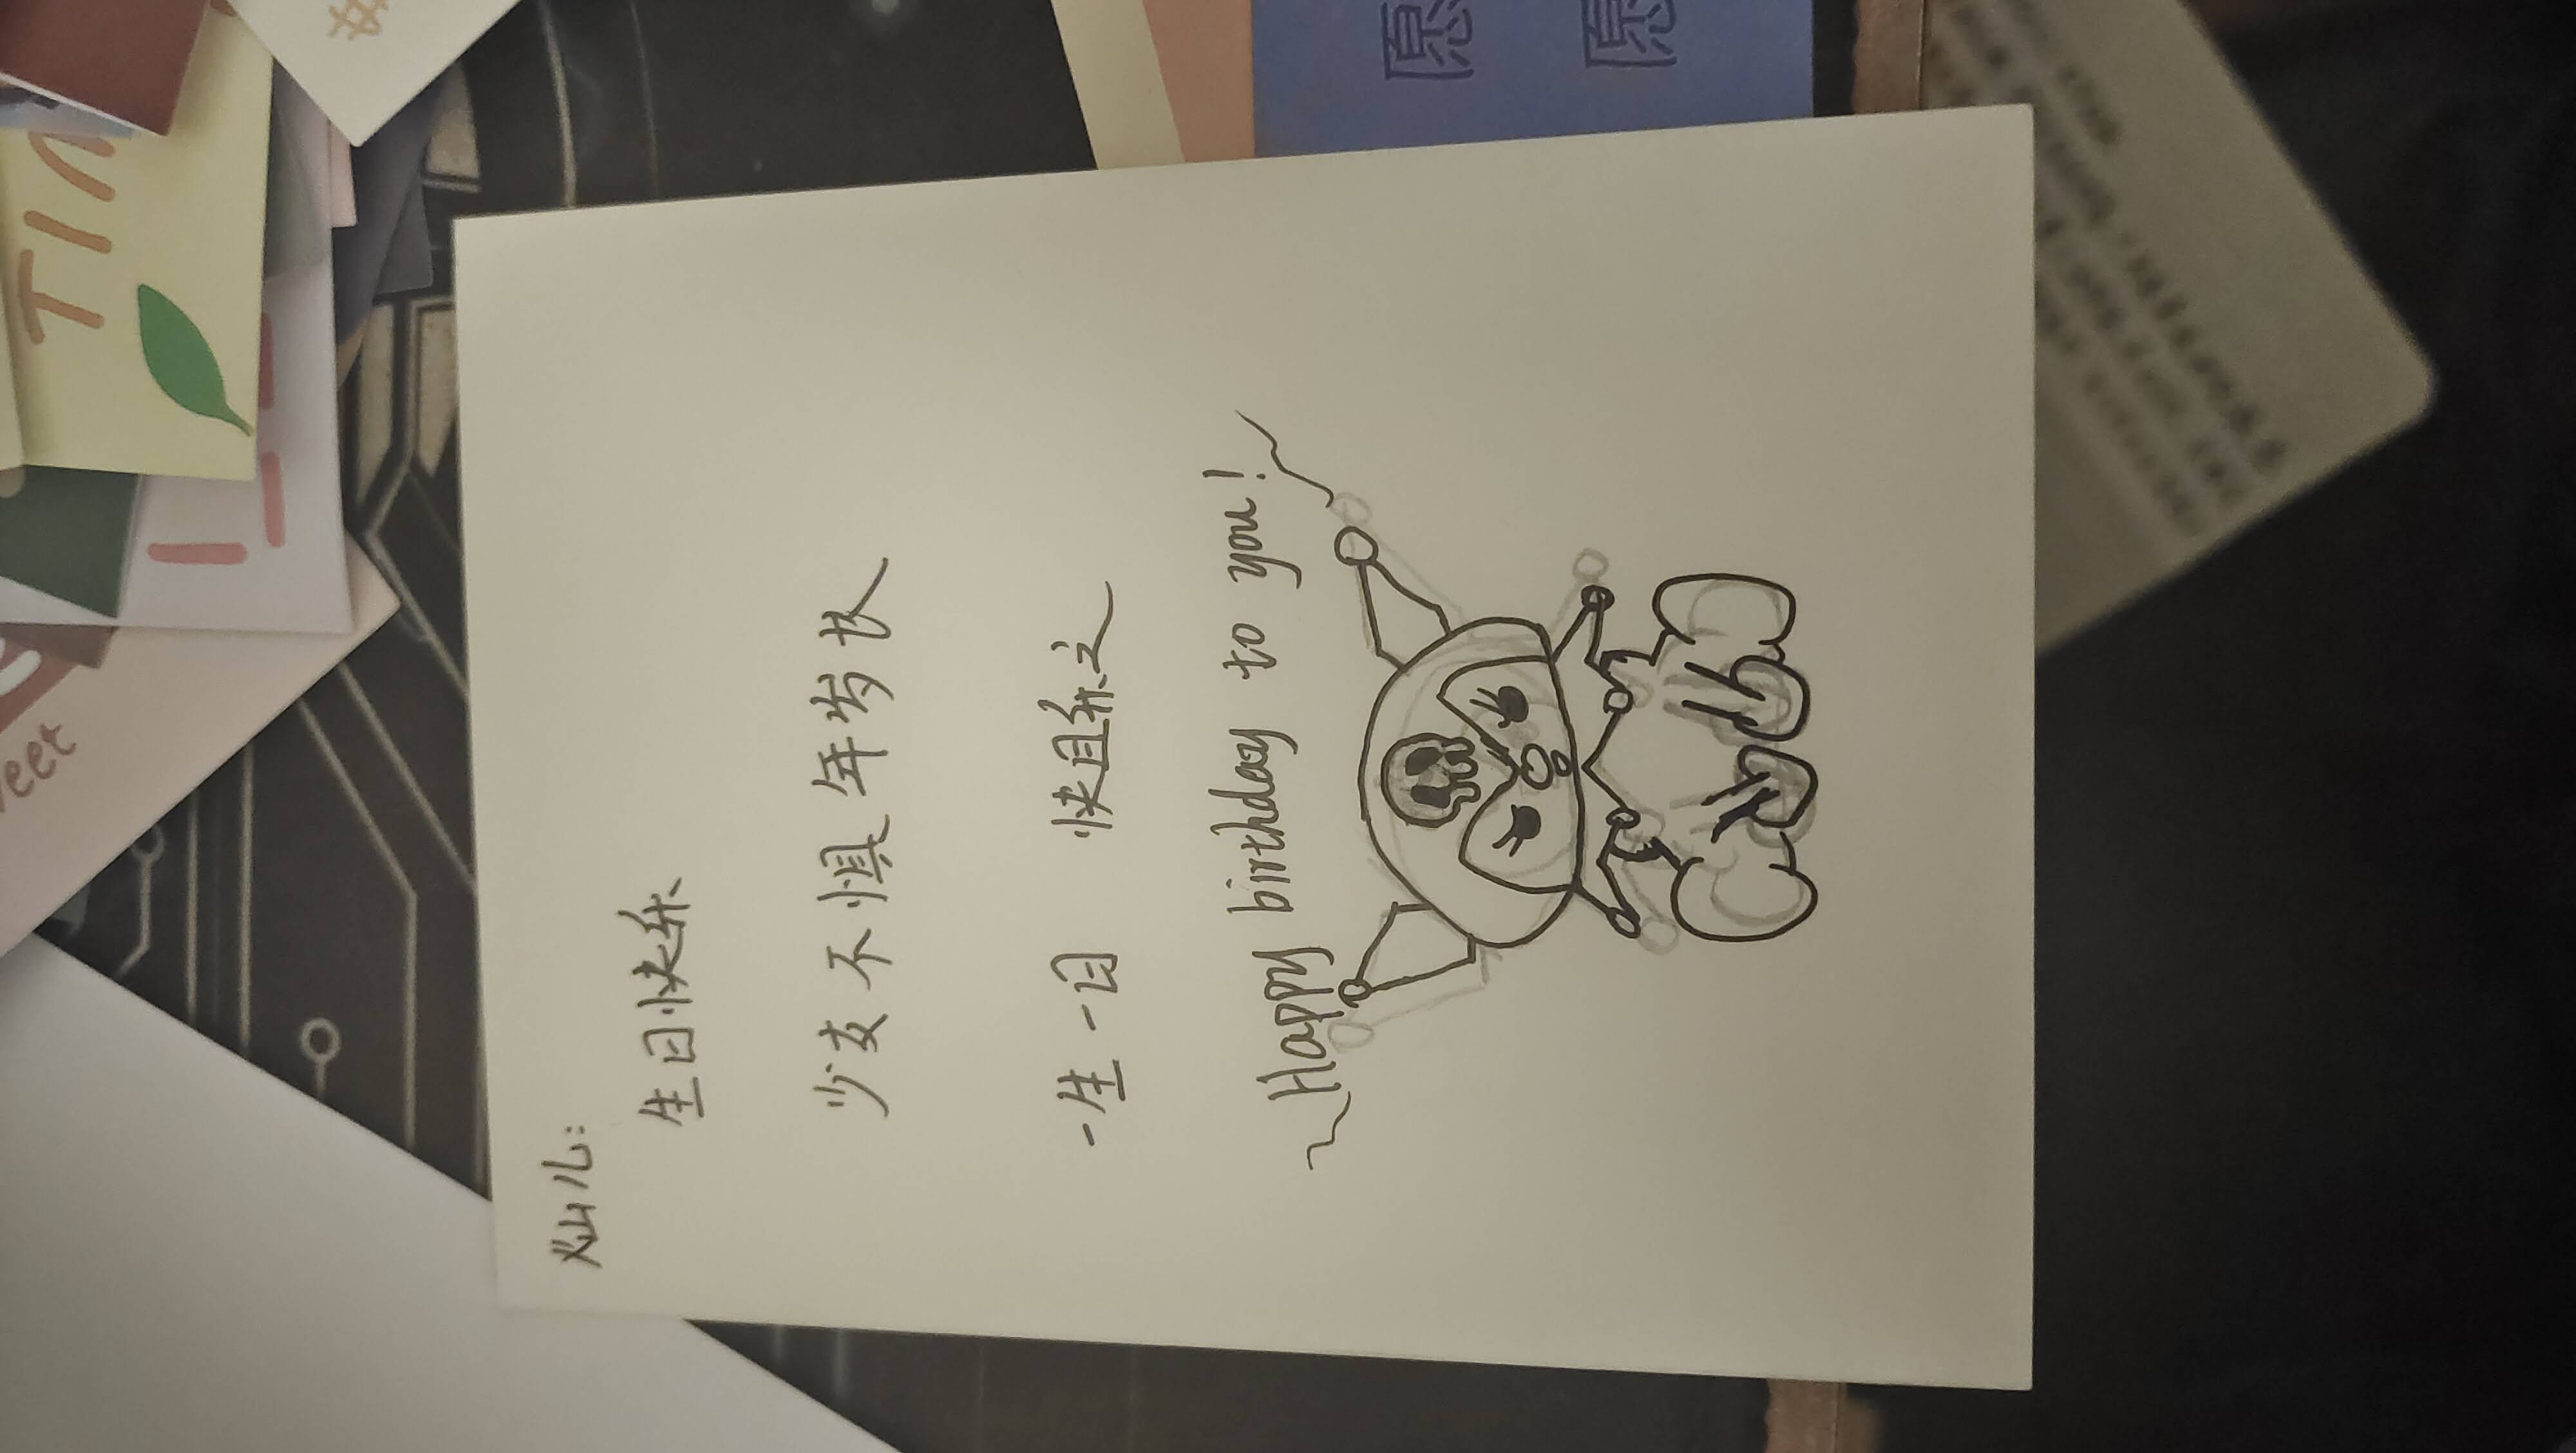 灿儿:
生日快乐
少友不惧年岁长
一生一日 快且乐之
~Happy birthday to you!~
TIM
eet
愿
愿